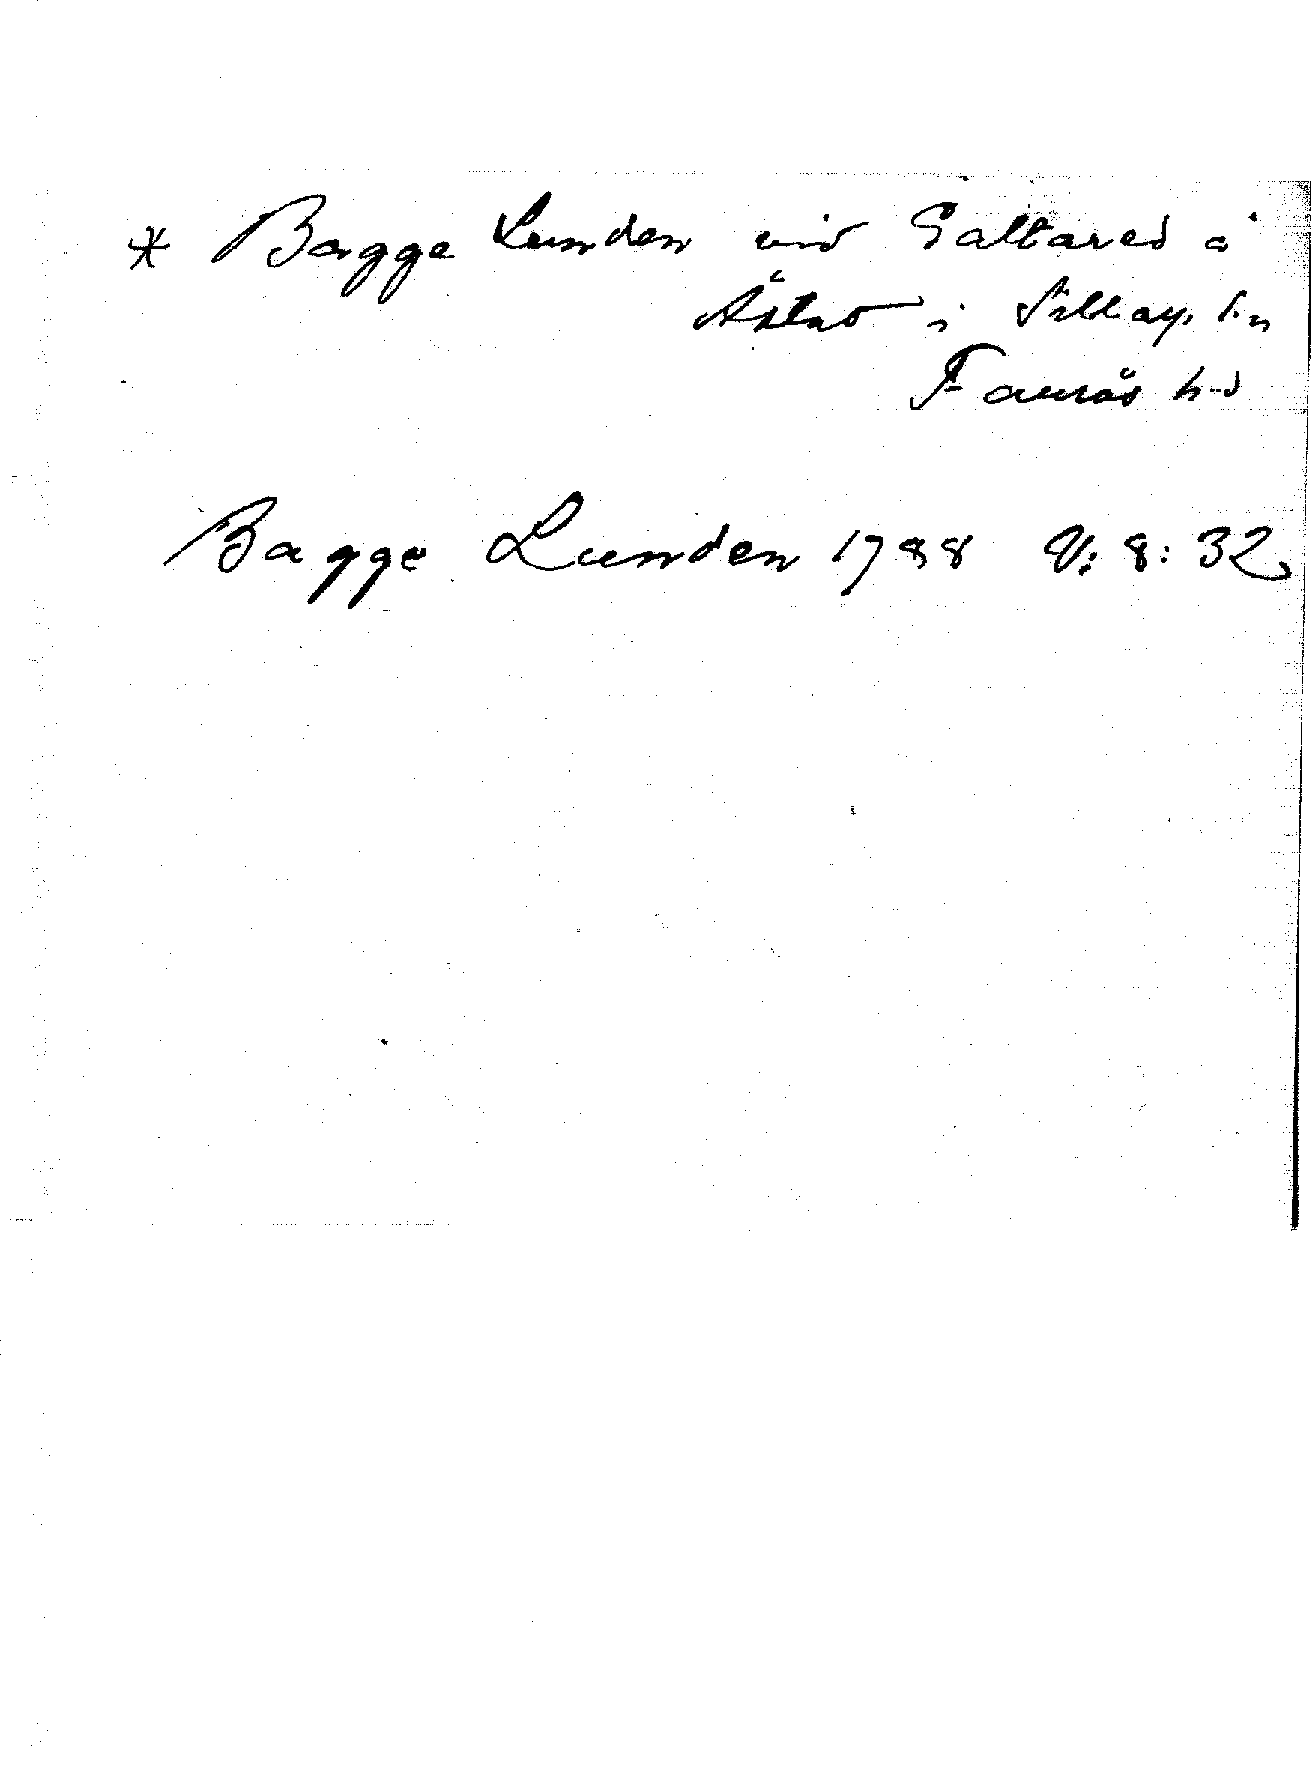 * Bagge Lunden vid Galtared å
Ästad i Sällay. s:n
Faurås h-d
Bagge Lunden 1788 V: 8: 32